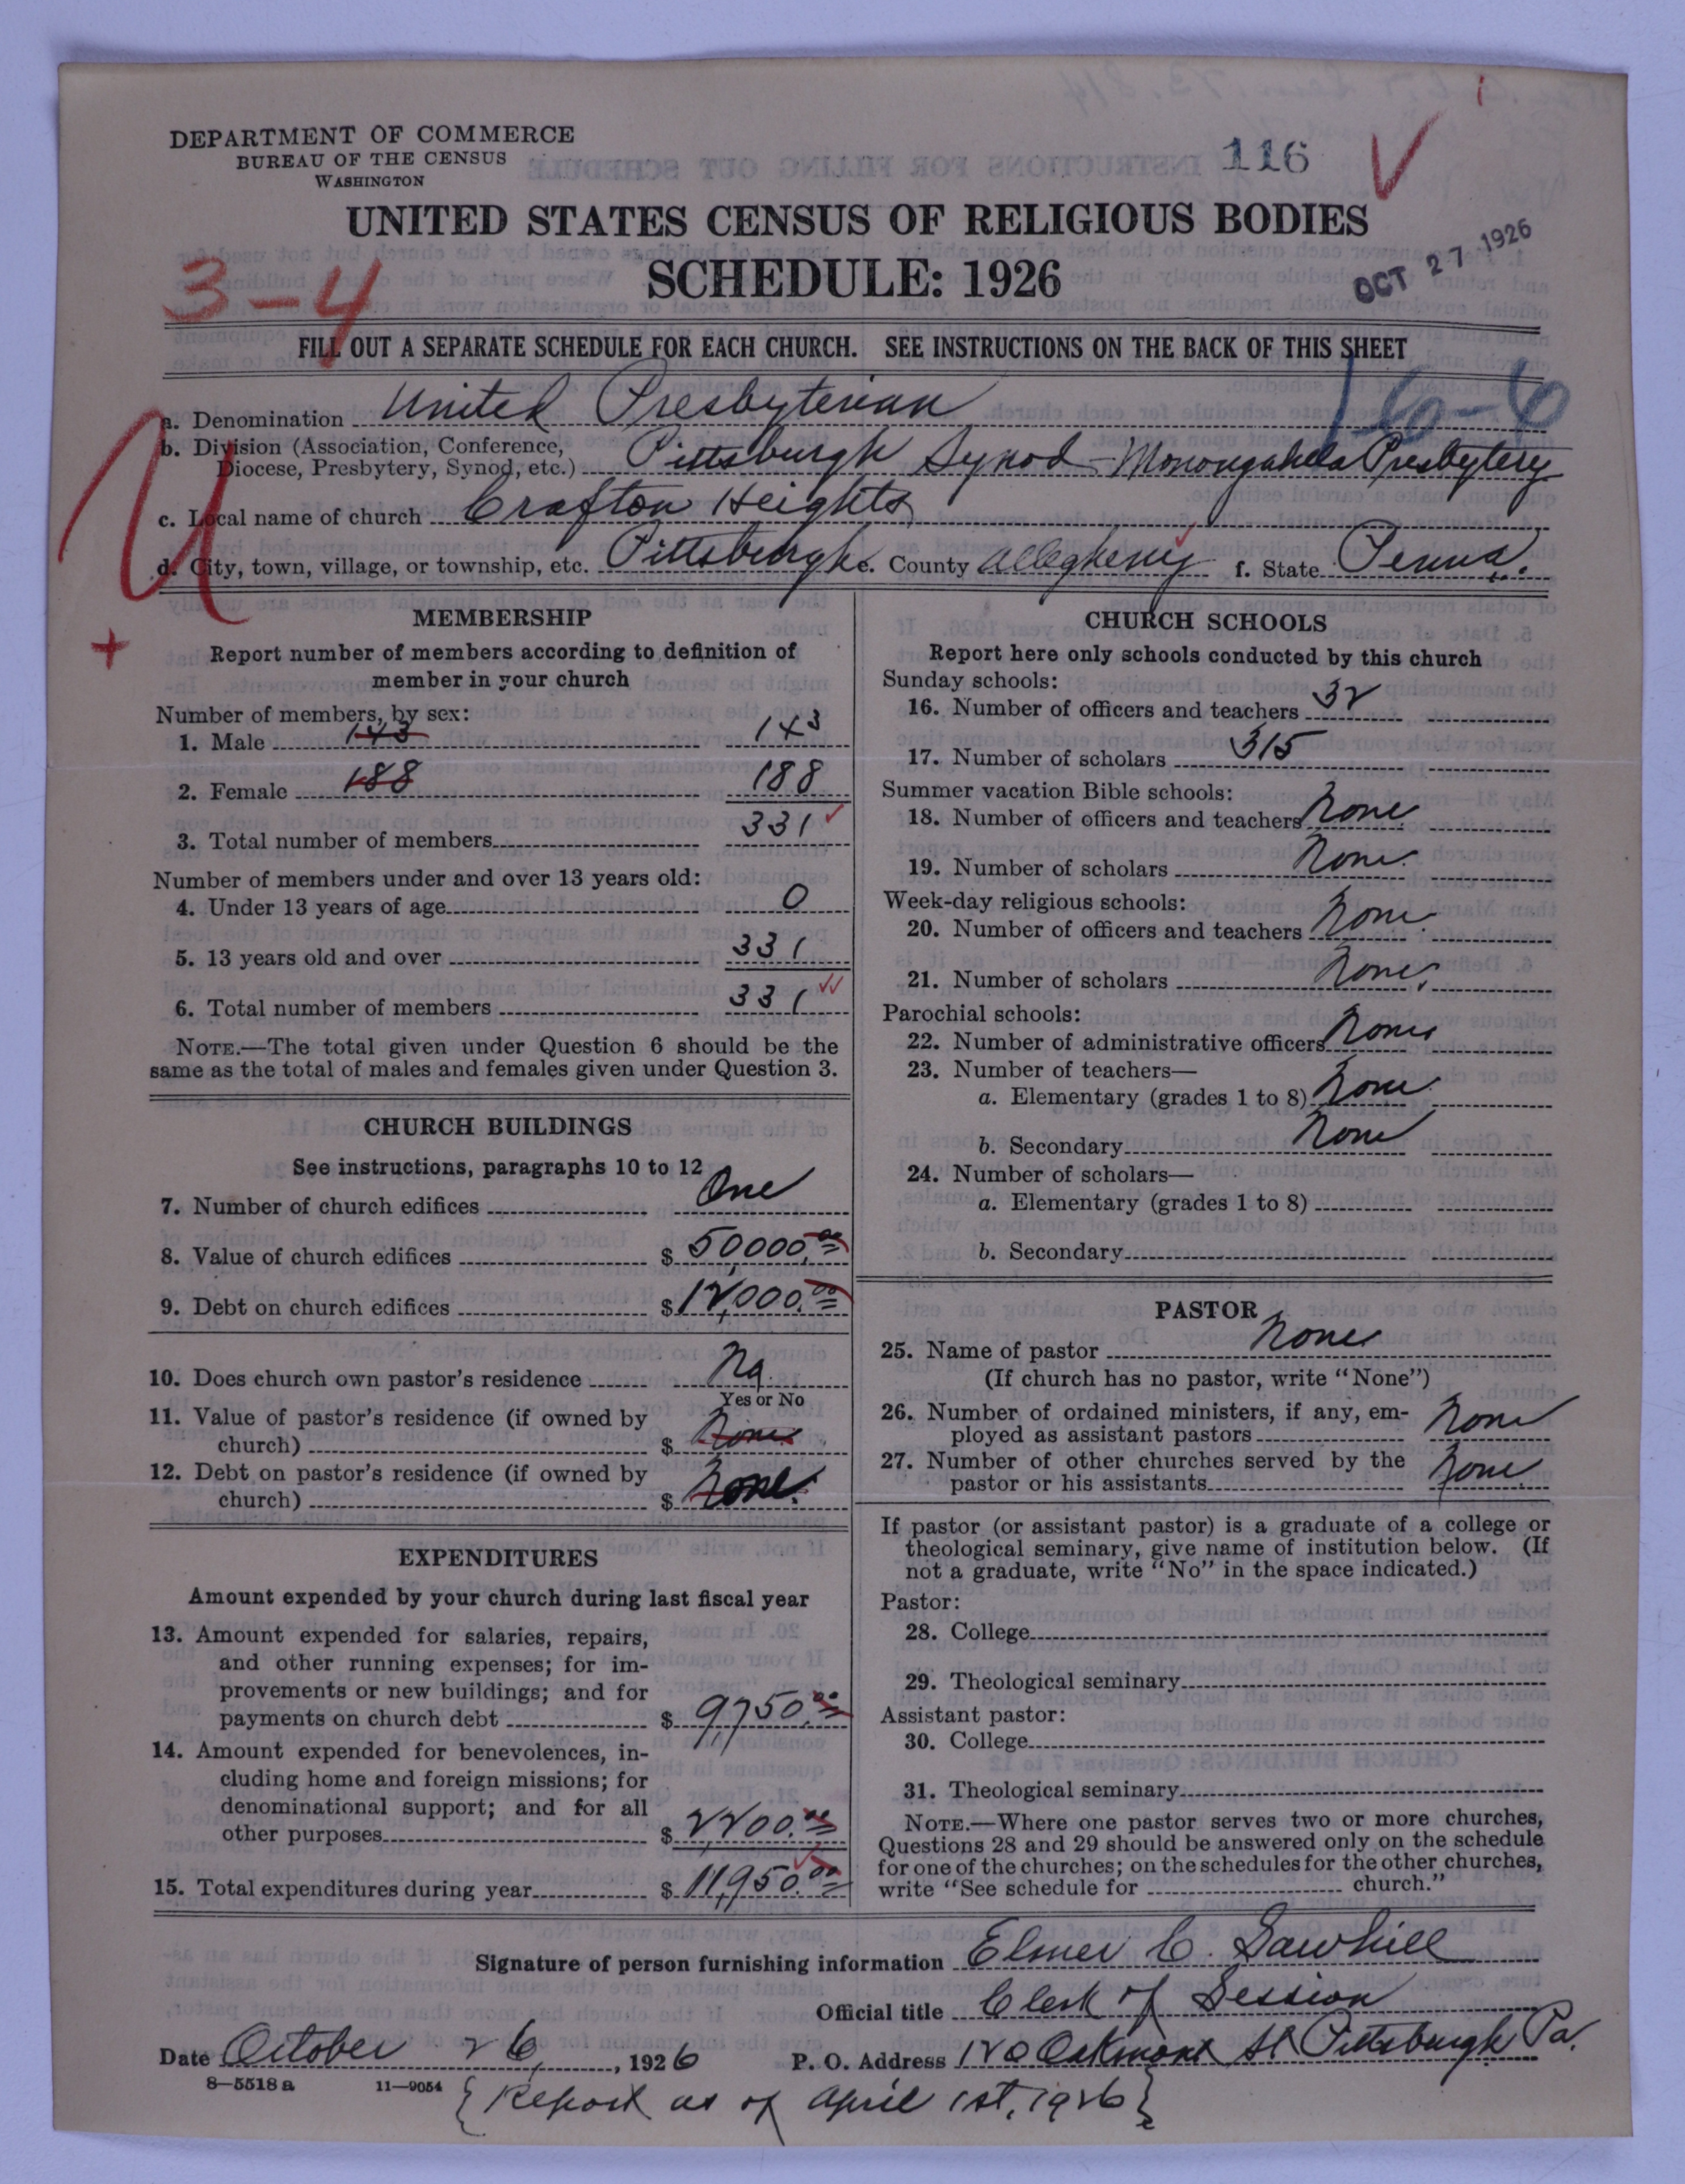 DEPARTMENT OF COMMERCE
BUREAU OF THE CENSUS
WASHINGTON
116
UNITED STATES CENSUS OF RELIGIOUS BODIES
SCHEDULE: 1926
OCT 27 1926
3-4
FILL OUT A SEPARATE SCHEDULE FOR EACH CHURCH. SEE INSTRUCTIONS ON THE BACK OF THIS SHEET
a. Denomination United Presbyterian
b. Division (Association, Conference, Diocese, Presbytery, Synod, etc.) Pittsburgh Synod - Monongahela Presbytery
c. Local name of church Crafton Heights
d. City, town, village, or township, etc. Pittsburgh e. County Allegheny f. State Penna.
MEMBERSHIP
Report number of members according to definition of
member in your church
Number of members, by sex:
1. Male 143 143
2. Female 188 188
3. Total number of members 331
Number of members under and over 13 years old:
4. Under 13 years of age 0
5. 13 years old and over 331
6. Total number of members 331
NOTE.—The total given under Question 6 should be the
same as the total of males and females given under Question 3.
CHURCH BUILDINGS
See instructions, paragraphs 10 to 12
7. Number of church edifices One
8. Value of church edifices $ 50,000.00
9. Debt on church edifices $ 12,000.00
10. Does church own pastor's residence No.
Yes or No
11. Value of pastor's residence (if owned by
church) $ None
12. Debt on pastor's residence (if owned by
church) $ None.
EXPENDITURES
Amount expended by your church during last fiscal year
13. Amount expended for salaries, repairs,
and other running expenses; for im-
provements or new buildings; and for
payments on church debt $ 9,750.00
14. Amount expended for benevolences, in-
cluding home and foreign missions; for
denominational support; and for all
other purposes $ 2,200.00
15. Total expenditures during year $ 11,950.00
CHURCH SCHOOLS
Report here only schools conducted by this church
Sunday schools:
16. Number of officers and teachers 32
17. Number of scholars 315
Summer vacation Bible schools:
18. Number of officers and teachers None.
19. Number of scholars None.
Week-day religious schools:
20. Number of officers and teachers None.
21. Number of scholars None.
Parochial schools:
22. Number of administrative officers None
23. Number of teachers—
a. Elementary (grades 1 to 8) None
b. Secondary None
24. Number of scholars—
a. Elementary (grades 1 to 8)
b. Secondary
PASTOR
25. Name of pastor None
(If church has no pastor, write "None")
26. Number of ordained ministers, if any, em-
ployed as assistant pastors None
27. Number of other churches served by the
pastor or his assistants None
If pastor (or assistant pastor) is a graduate of a college or
theological seminary, give name of institution below. (If
not a graduate, write "No" in the space indicated.)
Pastor:
28. College
29. Theological seminary
Assistant pastor:
30. College
31. Theological seminary
NOTE.—Where one pastor serves two or more churches,
Questions 28 and 29 should be answered only on the schedule
for one of the churches; on the schedules for the other churches,
write "See schedule for church."
Signature of person furnishing information Elmer C. Sawhill
Official title Clerk of Session
Date October 26, 1926 P. O. Address 120 Oakmont St Pittsburgh Pa.
8—5518 a 11—9054
{Report as of April 1st, 1926}